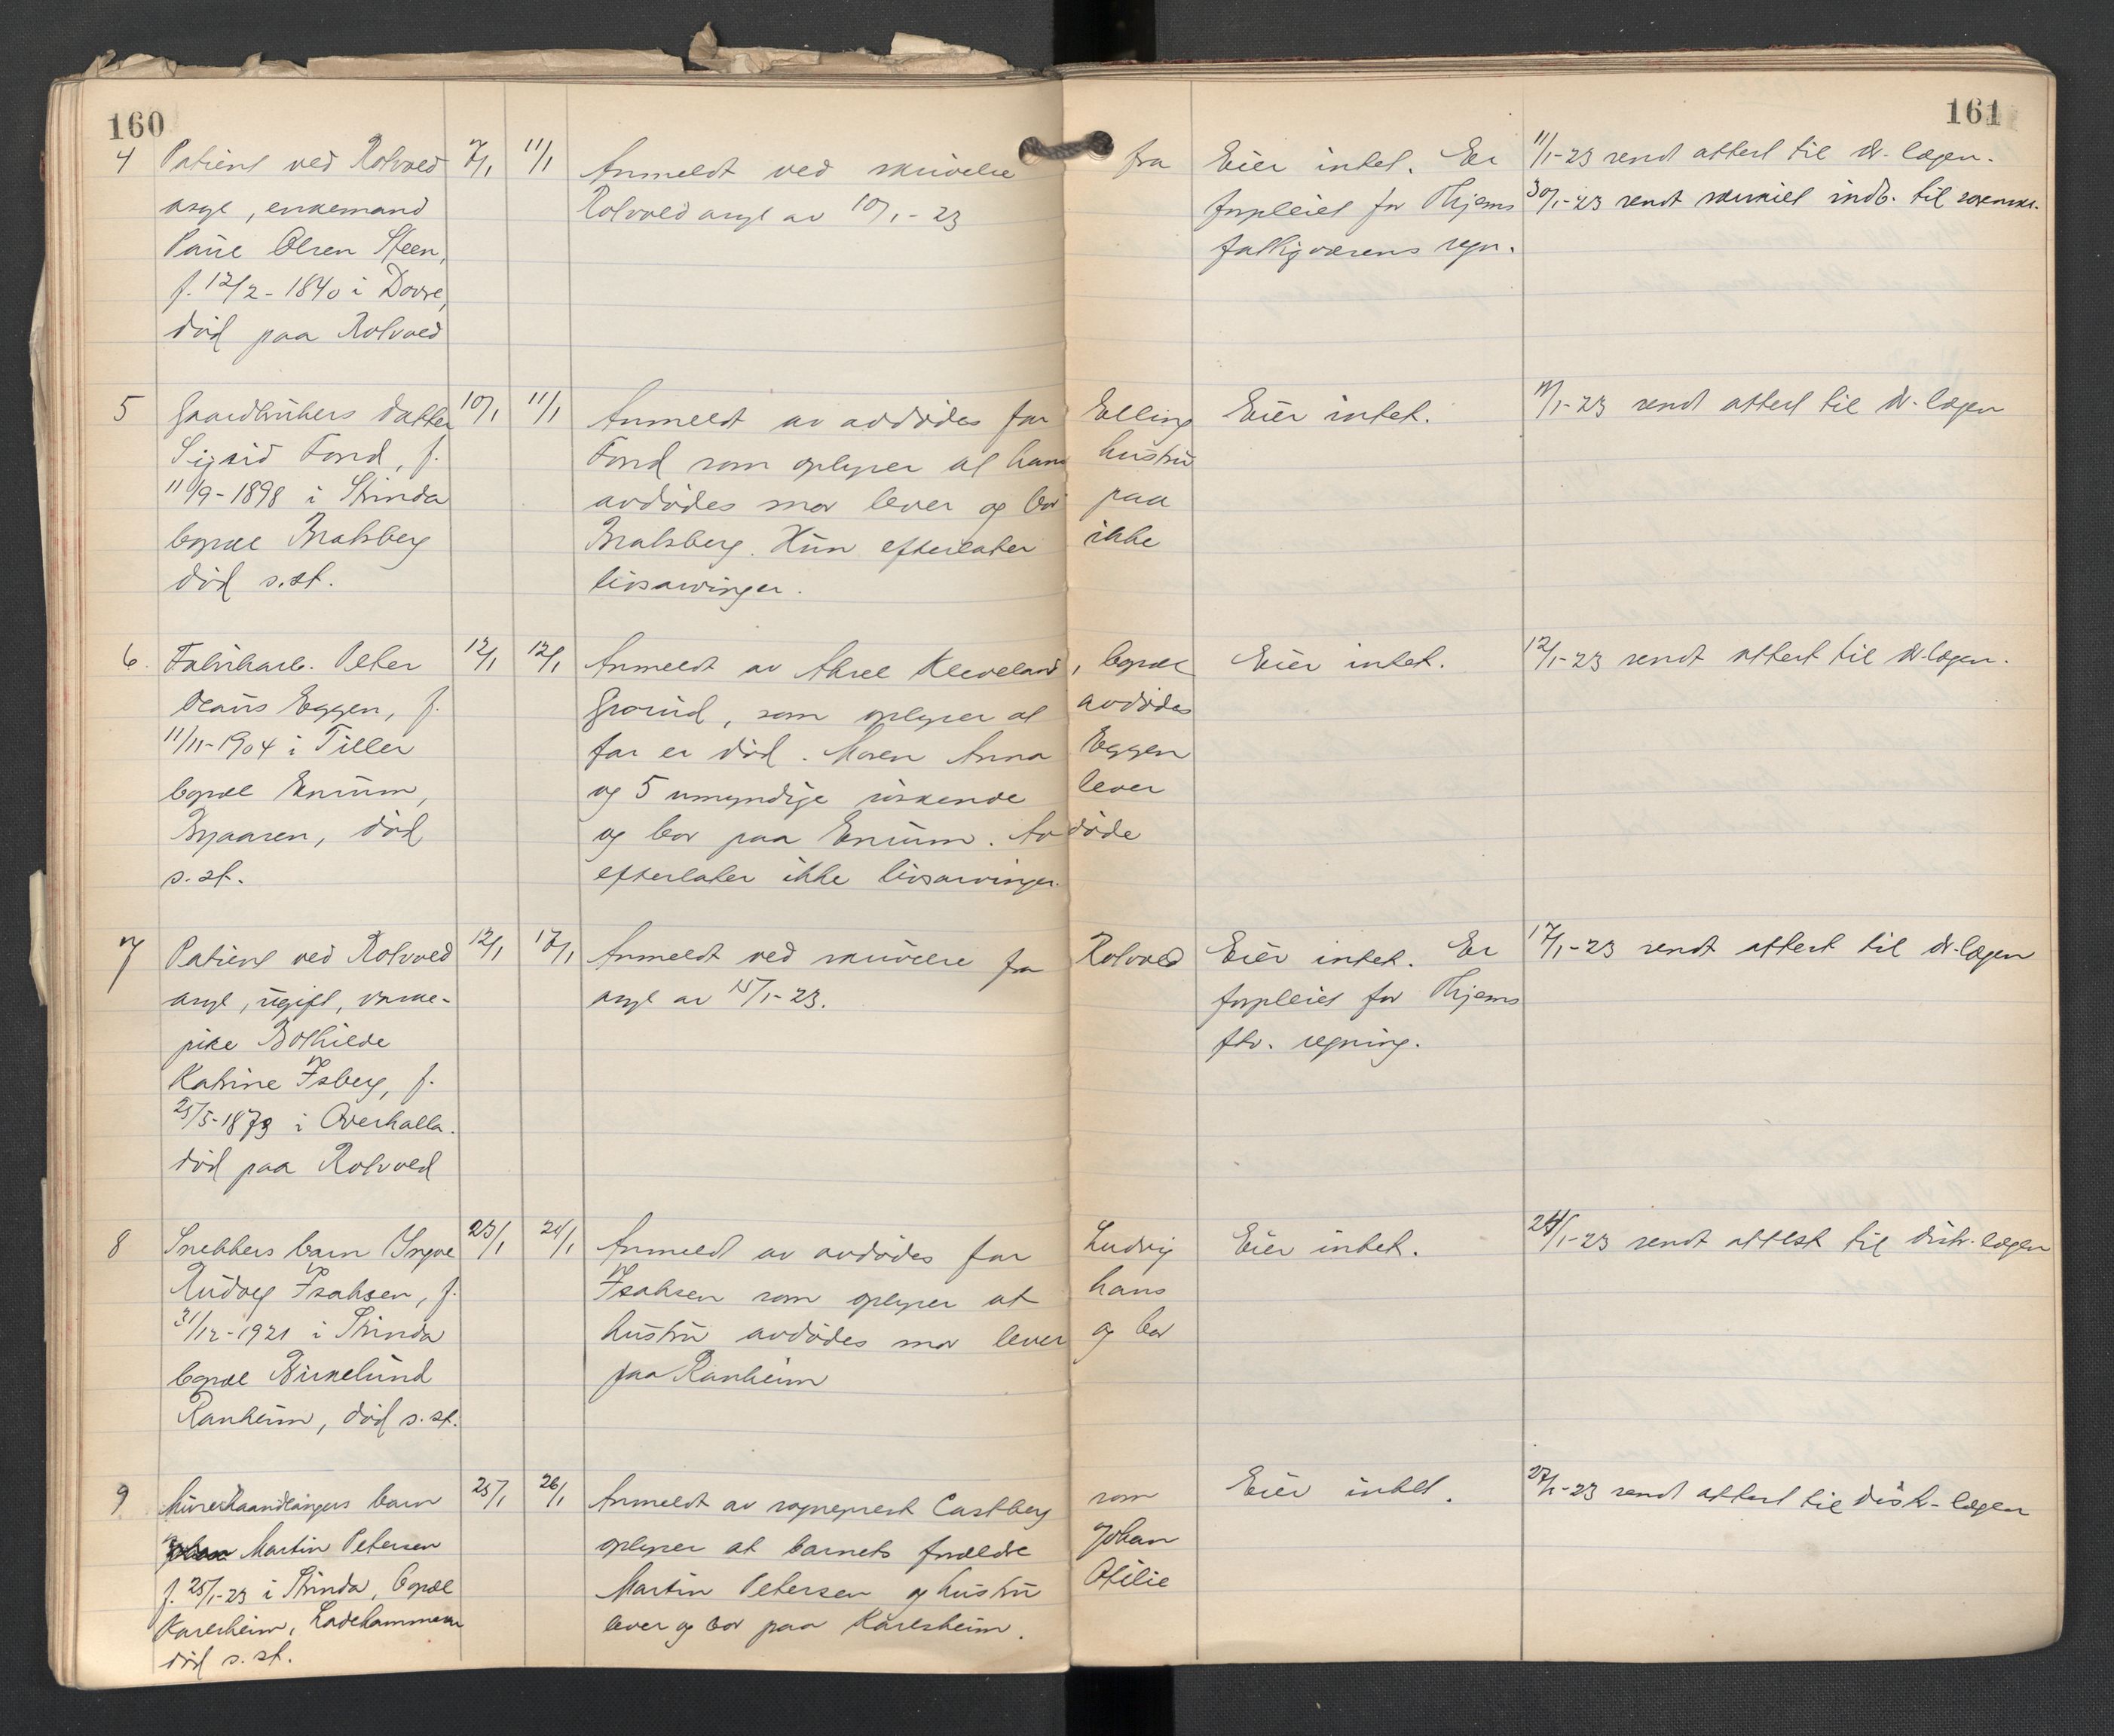 160
161
4 Patient ved Rotvold 7/1 11/1 Anmeldt ved skrivelse fra Eier intet. Er 11/1-23 sendt attest til d.lægen.
asyl, enkemand Rotvold asyl av 10/1-23 forpleiet for Hjems 30/1-23 sendt skriftl indb. til sorenskr.
Paul Olsen Steen, fattigvæsens regn.
f. 12/2-1840 i Dovre,
död paa Rotvold
5 Gaardbrukers datter 10/1 11/1 Anmeldt av avdödes far Elling Eier intet. 11/1-23 sendt attest til d.lægen
Sigrid Fond, f. Fond som oplyser at hans hustru
11/9-1898 i Strinda avdödes mor lever og bor paa
bopæl Bratsberg Bratsberg. Hun efterlater ikke
död s.st. livsarvinger.
6. Fabrikarb. Peter 12/1 12/1 Anmeldt av Aksel Kleveland, bopæl Eier intet. 12/1-23 sendt attest til d.lægen.
Eggen, f. Grorud, som oplyser at avdödes
11/11-1904 i Tiller far er död. Moren Anna Eggen
bopæl Enrum, og 5 umyndige söskende lever
död og bor paa Enrum. Avdöde
s.st. efterlater ikke livsarvinger.
7 Patient ved Rotvold 12/1 17/1 Anmeldt ved skrivelse fra Rotvold Eier intet. Er 17/1-23 sendt attest til d.lægen
asyl, ugift, vaske- asyl av 15/1-23. forpleiet for Hjems
pike Bothilde ftv. regning.
Katrine Isberg, f.
25/5-1873 i Overhalla.
död paa Rotvold
8 Snekkers barn Yngve 23/1 24/1 Anmeldt av avdödes far Ludvig Eier intet. 24/1-23 sendt attest til distr.lægen
Rudolf Isaksen, f. Isaksen som oplyser at hans
31/12-1921 i Strinda hustru avdödes mor lever og bor
bopæl Birkelund paa Ranheim
Ranheim, död s.st.
9 Murerhaandlangers barn 25/1 26/1 Anmeldt av sogneprest Castberg som Eier intet. 27/1-23 sendt attest til distr-lægen
Johan Martin Petersen oplyser at barnets forældre Johan
f. 25/1-23 i Strinda, bopæl Martin Petersen og hustru Otilie
Karlsheim, Ladehammeren lever og bor paa Karlsheim.
död s.st.